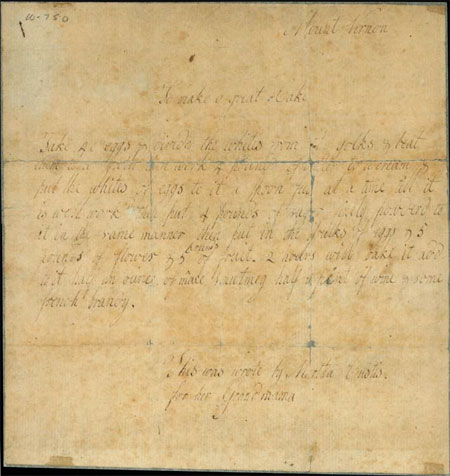 10-750
Mount Vernon
To make a great Cake
Take 40 eggs & divide the whites from the yolks & beat
them to a froth then work 4 pounds of butter to a cream &
put the whites of eggs to it a spoon full at a time till it
is well work'd then put 4 pounds of sugar finely powderd to
it in the same manner then put in the youlks of eggs & 5
pounds of flower & 5 pounds of fruit. 2 hours will bake it add
to it half an ounce of mace & nutmeg half a pint of wine & some
french brandy.
This was wrote by Martha Custis
for her Grandmama